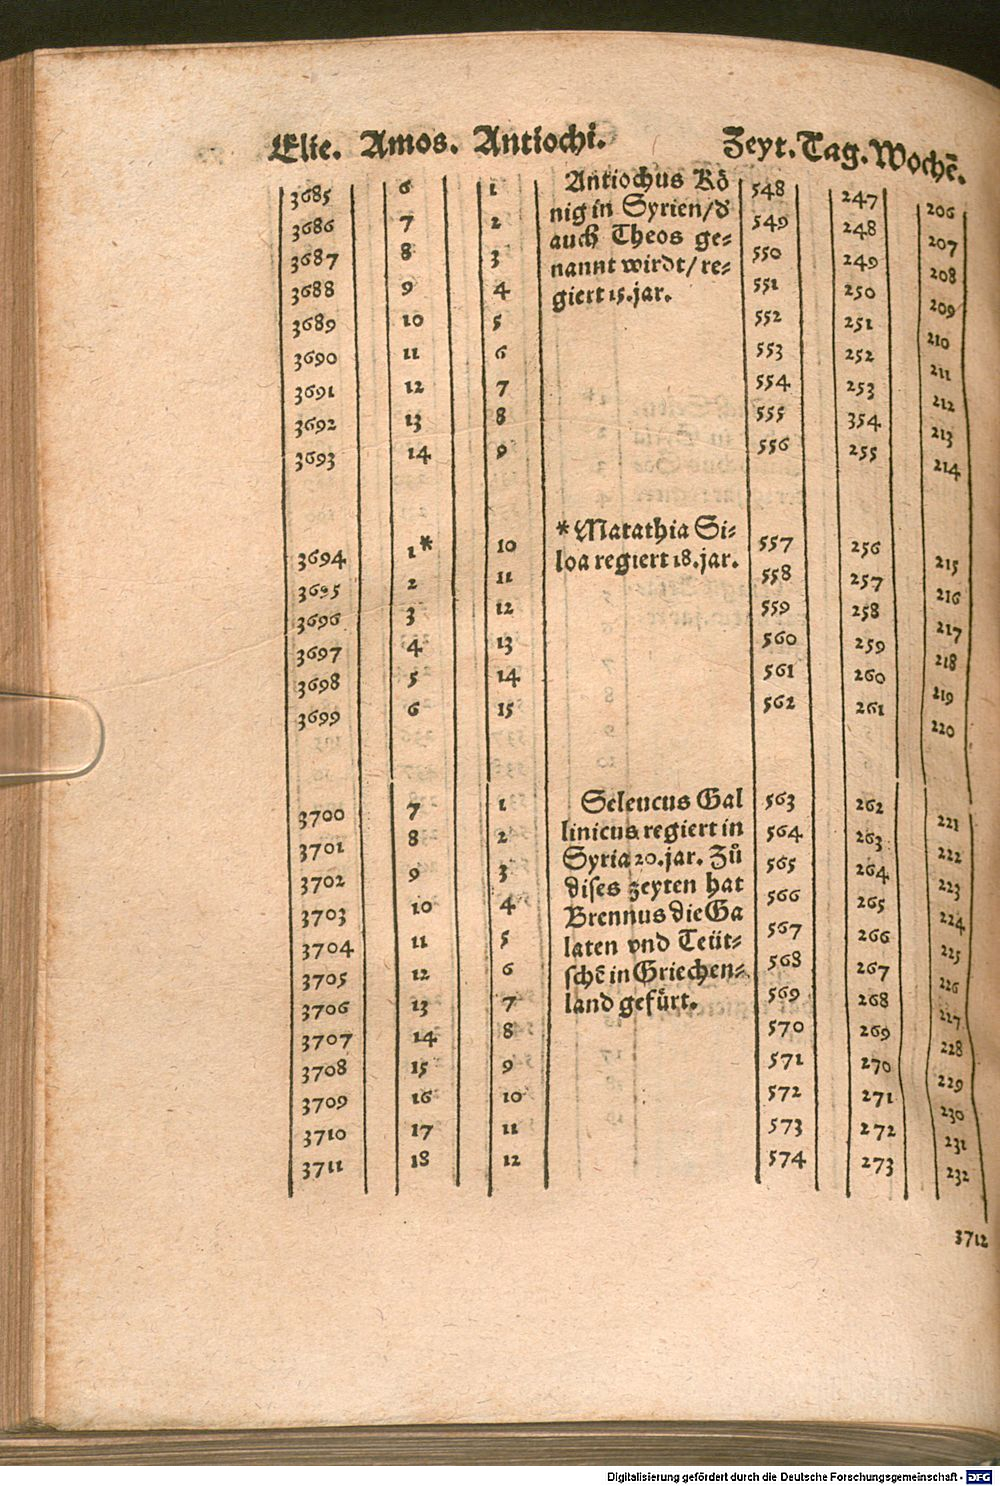 Elie. Amos. Antiochi. Zeyt. Tag. Wochē.
3685 6 1 Antiochus Kö 548 247 206
3686 7 2 nig in Syrien/d 549 248 207
3687 8 3 auch Theos ge= 550 249 208
3688 9 4 nannt wirdt/ re= 551 250 209
3689 10 5 giert 15. jar. 552 251 210
3690 11 6 553 252 211
3691 12 7 554 253 212
3692 13 8 555 354 213
3693 14 9 556 255 214
3694 1* 10 *Matathia Si= 557 256 215
3695 2 11 loa regiert 18. jar. 558 257 216
3696 3 12 559 258 217
3697 4 13 560 259 218
3698 5 14 561 260 219
3699 6 15 562 261 220
3700 7 1 Seleucus Gal 563 262 221
3701 8 2 linicus regiert in 564 263 222
3702 9 3 Syria 20. jar. Zů 565 264 223
3703 10 4 dises zeyten hat 566 265 224
3704 11 5 Brennus die Ga 567 266 225
3705 12 6 laten vnd Teüt= 568 267 226
3706 13 7 schē in Griechen= 569 268 227
3707 14 8 land gefürt. 570 269 228
3708 15 9 571 270 229
3709 16 10 572 271 230
3710 17 11 573 272 231
3711 18 12 574 273 232
3712
Digitalisierung gefördert durch die Deutsche Forschungsgemeinschaft - DFG